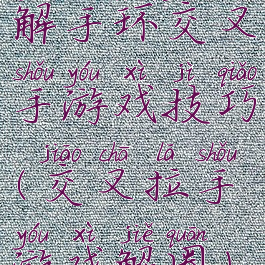 解手环交叉
shǒu yóu xì jì qiǎo
手游戏技巧
jiāo chā lā shǒu
(交叉拉手
yóu xì jiě quān
游戏解圈)